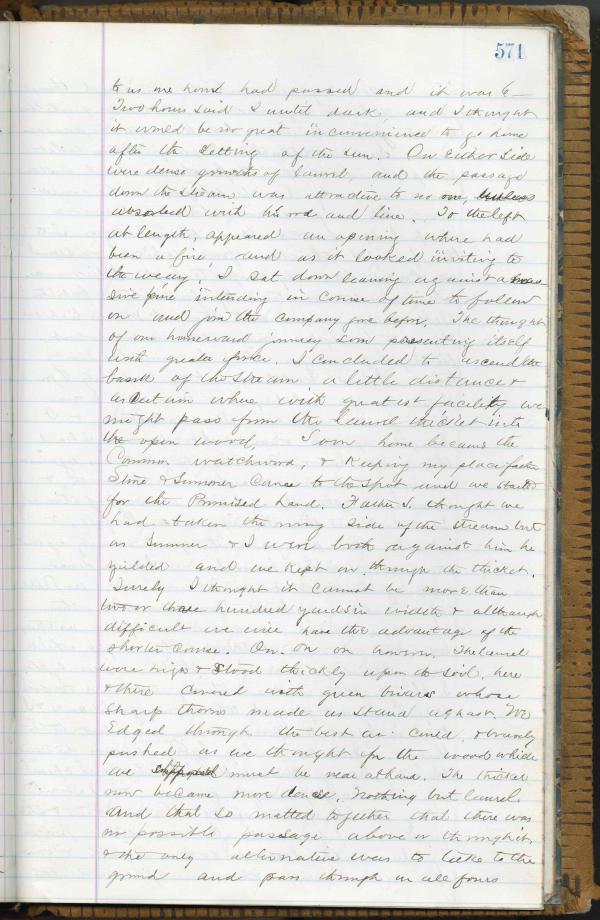 571
to us one hour had passed and it was 6 —
Two hours said I until dark, and I thought
it would be no great inconvenience to go home
after the setting of the sun. On either side
were dense growths of laurel, and the passage
down the stream was attractive to no one, unless
absorbed with his rod and line. To the left
at length, appeared an opening where had
been a fire, and as it looked inviting to
the weary, I sat down leaning against a mas-
sive pine intending in course of time to follow
on and join the company gone before. The thought
of our homeward journey soon presenting itself
with greater force. I concluded to ascend the
bank of the stream a little distance &
ascertain where with greatest facility we
might pass from the laurel thicket into
the open wood. Soon home became the
Common watchword, & keeping my place father
Stone & Sumner came to the spot and we started
for the Promised Land. Father S. thought we
had taken the wrong side of the stream but
as Sumner & I were both against him he
yielded and we kept on through the thicket.
Surely I thought it cannot be more than
two or three hundred yards in width & although
difficult we will have the advantage of the
shorter course. On on on The laurel
were high & stood thickly upon the soil, here
& there covered with green briers whose
sharp thorns made us stand aghast. We
Edged through the best we could & bravely
pushed as we thought for the wood which
we supposed must be near at hand. The thicket
now became more dense. Nothing but laurel
and that so matted together that there was
no possible passage above or through it,
& the only alternative was to take to the
ground and pass through on all fours